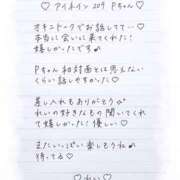 ♡ アイネイン 209 Pちゃん
オキニトークでお話してて…♡
本当に会いに来てくれた！
嬉しかったです♪
Pちゃん初対面とは思えない
くらい話しやすかった♡
差し入れもありがとう♪
れいの好きなもの聞いてくれ
て嬉しかった！優しい♡
またいっぱい楽しもうね♪
待ってる♡
♡れい♡